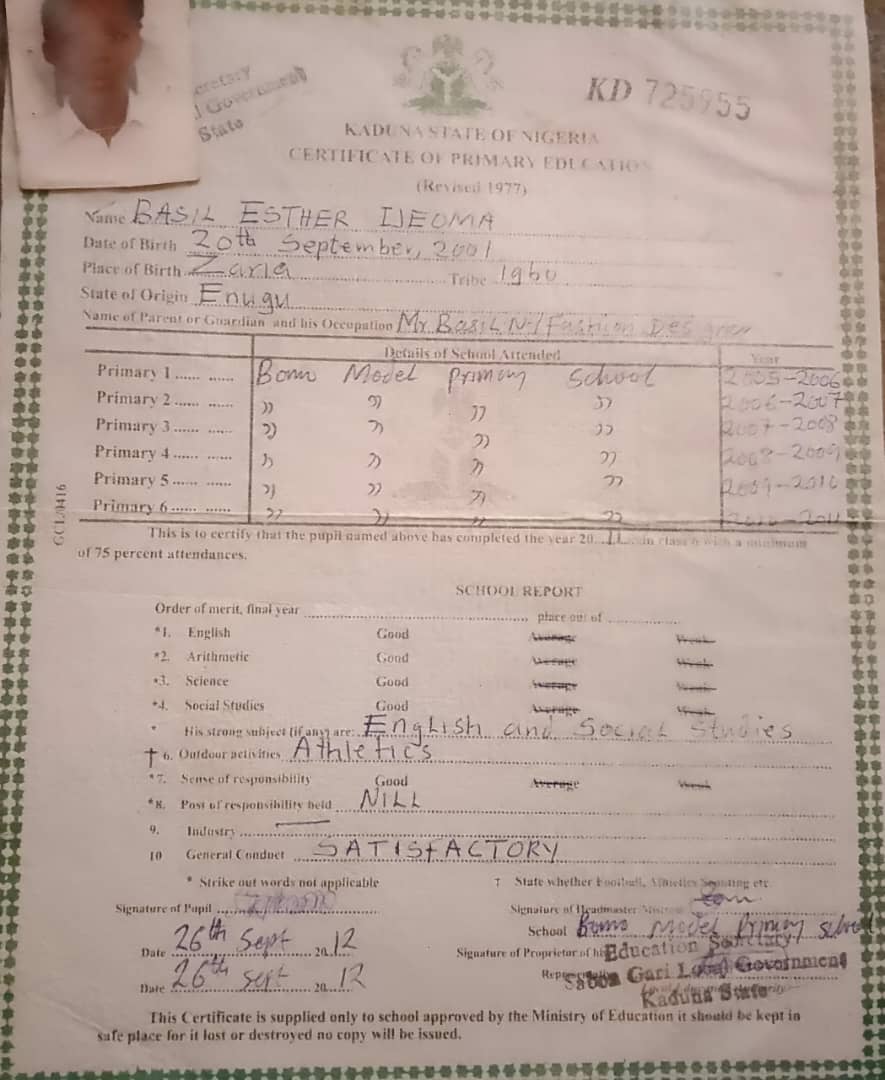 cretary
l Government
State
KD 725955
KADUNA STATE OF NIGERIA
CERTIFICATE OF PRIMARY EDUCATION
(Revised 1977)
Name BASIL ESTHER IJEOMA
Date of Birth 20th September, 2001
Place of Birth Zaria Tribe Igbo
State of Origin Enugu
Name of Parent or Guardian and his Occupation Mr Basil N./Fashion Designer
Details of School Attended Year
Primary 1 ...... ...... Bomo Model primary School 2005-2006
Primary 2 ...... ...... ,, ,, ,, ,, 2006-2007
Primary 3 ...... ...... ,, ,, ,, ,, 2007-2008
Primary 4 ...... ...... ,, ,, ,, ,, 2008-2009
Primary 5 ...... ...... ,, ,, ,, ,, 2009-2010
Primary 6 ...... ...... ,, ,, ,, ,, 2010-2011
GCL/0416
This is to certify that the pupil named above has completed the year 20...11... in class 6 with a minimum
of 75 percent attendances.
SCHOOL REPORT
Order of merit, final year .......... place out of ..........
*1. English Good Average Weak
*2. Arithmetic Good Average Weak
*3. Science Good Average Weak
*4. Social Studies Good Average Weak
* His strong subject (if any) are: English and Social Studies
† 6. Outdoor activities Athletics
*7. Sense of responsibility Good Average Weak
*8. Post of responsibility held NILL
9. Industry
10 General Conduct SATISFACTORY
* Strike out words not applicable † State whether Football, Athletics Scouting etc.
Signature of Pupil Signature of Headmaster
School Bomo Model Primary School
Date 26th Sept 2012 Signature of Proprietor of his
Education Secretary
Date 26th sept 2012
Sabon Gari Local Government
Kaduna State
This Certificate is supplied only to school approved by the Ministry of Education it should be kept in
safe place for it lost or destroyed no copy will be issued.